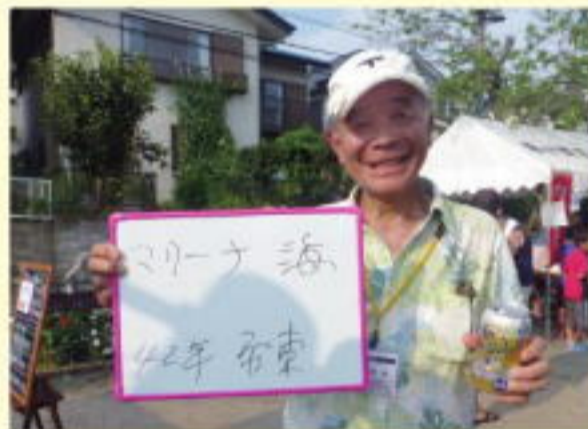 マリーナ 海
42年